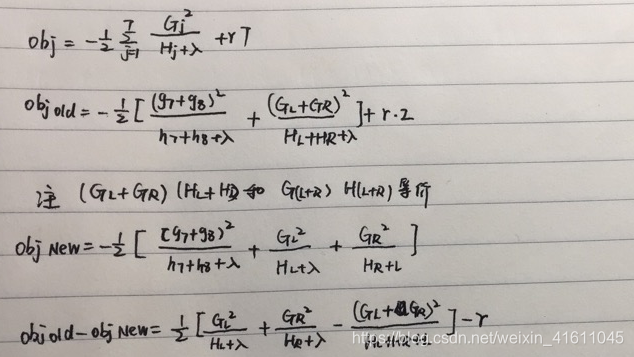 obj = -1/2 Σ_{j=1}^{T} G_j^2 / (H_j+λ) + rT
obj old = -1/2 [ (g7+g8)^2 / (h7+h8+λ) + (GL+GR)^2 / (HL+HR+λ) ] + r·2
注 (GL+GR) (HL+HR) 和 G(L+R) H(L+R) 等价
obj New = -1/2 [ (g7+g8)^2 / (h7+h8+λ) + GL^2 / (HL+λ) + GR^2 / (HR+L ]
obj old - obj New = 1/2 [ GL^2 / (HL+λ) + GR^2 / (HR+λ) - (GL+GR)^2 / ] - r
https://blog.csdn.net/weixin_41611045